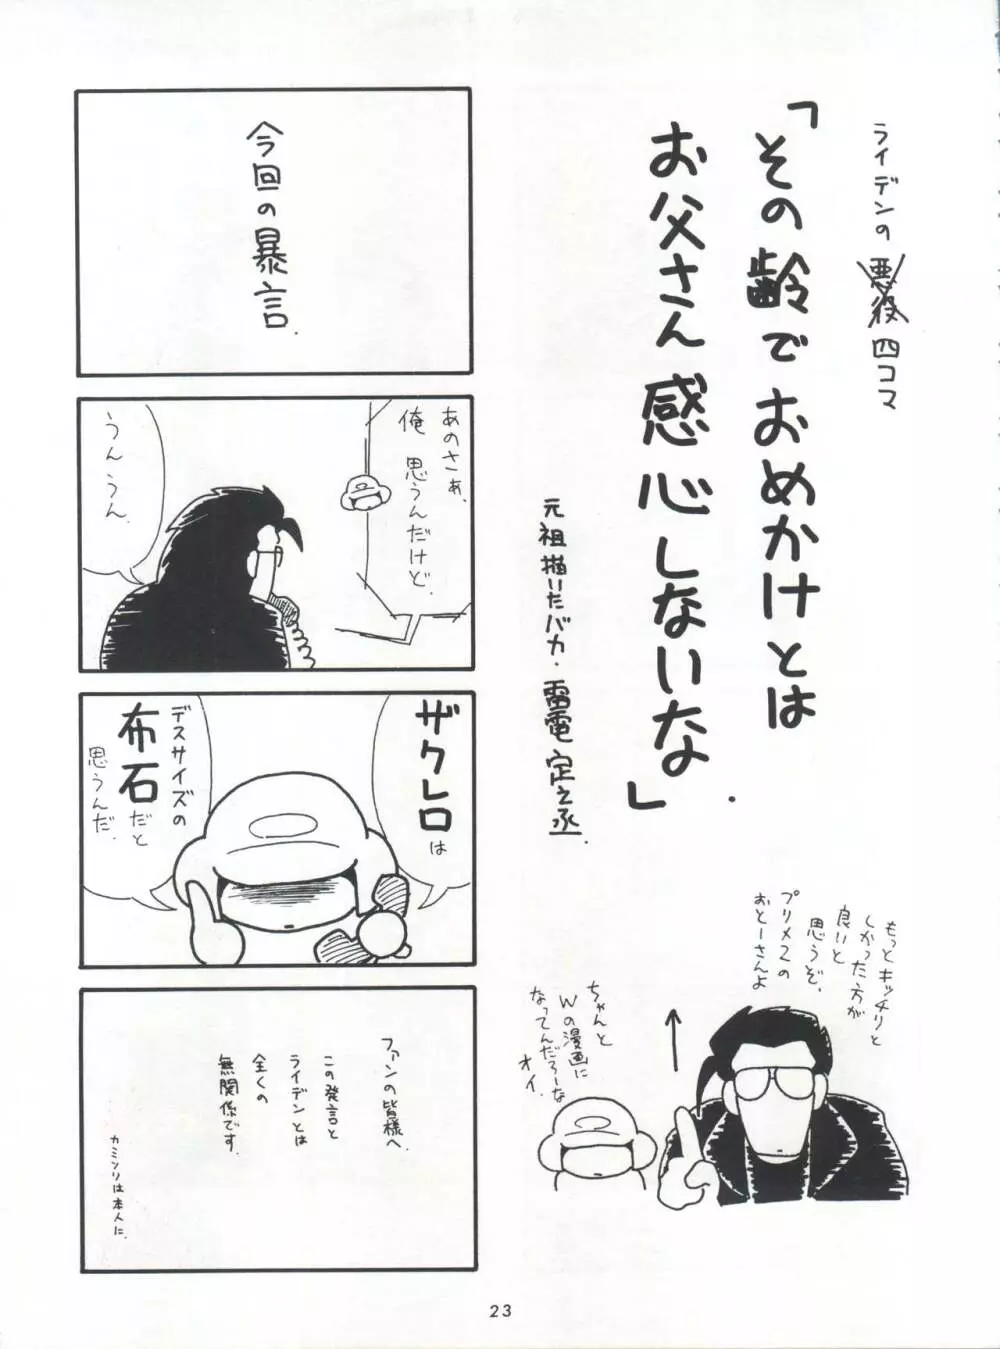 ライデンの悪役四コマ
「その齢でおめかけとは
お父さん感心しないな」.
元祖描いたバカ・雷電定之丞.
もっとキッチリと
しかった方が
良いと
思うぞ、
プリメ2の
おとーさんよ
ちゃんと
Wの漫画に
なってんだろーな
オイ.
今回の暴言.
あのさぁ、
俺思うんだけど.
うんうん.
ザクレロは
デスサイズの
布石だと
思うんだ.
ファンの皆様へ.
この発言と
ライデンとは
全くの
無関係です.
カミソリは本人に.
23